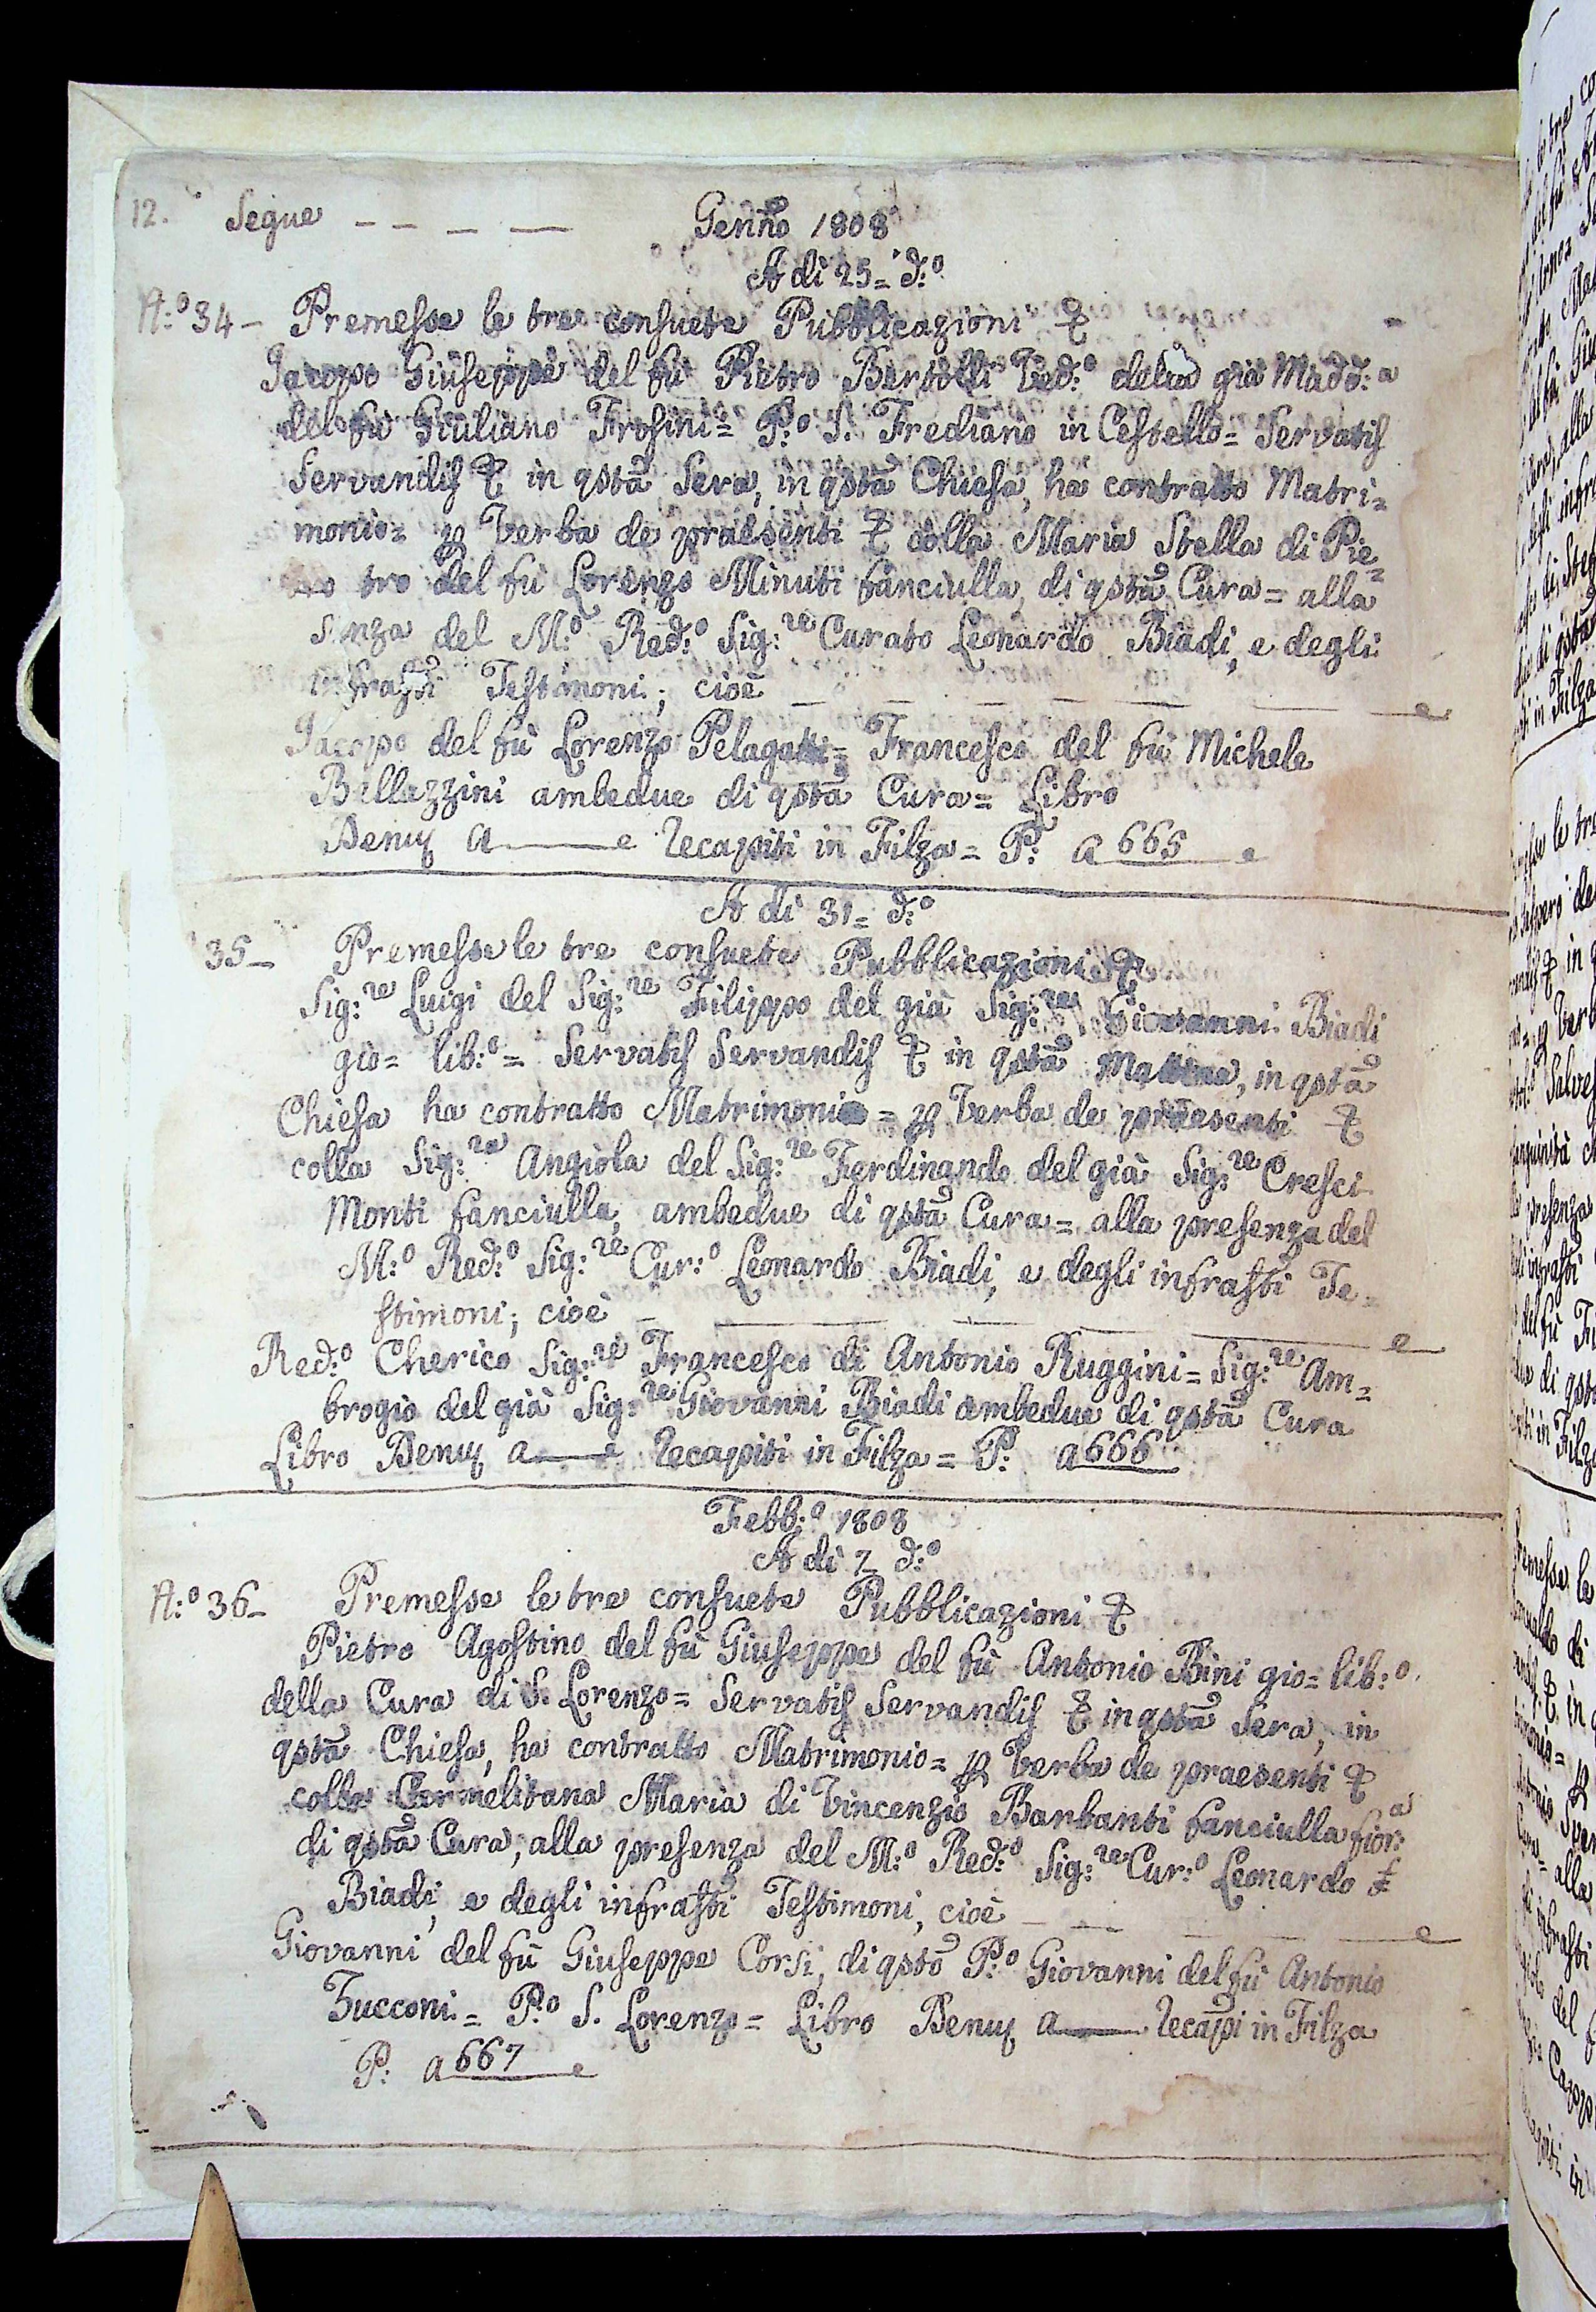 12. Segue - - - - Genño 1808
A dì 25= d:º
N:º 34 - Premesse le tre consuete Pubblicazioni &
Jacopo Giuseppe del fù Pietro Bertolli Ved:º della già Madd:ª
del fù Giuliano Frosini= P:º S. Frediano in Cestello= Servatis
Servandis & in qstã Sera, in qstã Chiesa, ha contratto Matri=
monio= p Verba de praesenti & colla Maria Stella di Pie=
tro del fù Lorenzo Minuti fanciulla, di qstã Cura= alla
senza del M:º Red:º Sig:re Curato Leonardo Biadi, e degli
infrastti Testimoni; cioè
Jacopo del fù Lorenzo Pelagatti= Francesco del fù Michele
Bellazzini ambedue di qstã Cura= Libro
Denuz a recapiti in Filza= P: a 665
A dì 31= d:º
35 - Premesse le tre consuete Pubblicazioni &
Sig:re Luigi del Sig:re Filippo del già Sig:re Giovanni Biadi
gio= lib:º= Servatis Servandis & in qstã Mattina, in qstã
Chiesa ha contratto Matrimonio= p Verba de praesenti &
colla Sig:ra Angiola del Sig:re Ferdinando del già Sig:re Cresci
Monti fanciulla, ambedue di qstã Cura= alla presenza del
M:º Red:º Sig:re Cur:º Leonardo Biadi, e degli infrastti Te=
stimoni; cioè
Red:º Cherico Sig:re Francesco di Antonio Ruggini= Sig:re Am=
brogio del già Sig:re Giovanni Biadi ambedue di qstã Cura
Libro Denuz a recapiti in Filza= P: a 666
Febb:º 1808
A dì 2 d:º
N:º 36 - Premesse le tre consuete Pubblicazioni &
Pietro Agostino del fù Giuseppe del fù Antonio Bini gio= lib:º
della Cura di S. Lorenzo= Servatis Servandis & in qstã Sera, in
qstã Chiesa, ha contratto Matrimonio= p Verba de praesenti &
colla Carmelitana Maria di Vincenzio Barbanti fanciulla fior:ª
di qstã Cura, alla presenza del M:º Red:º Sig:re Cur:º Leonardo
Biadi, e degli infrastti Testimoni, cioè
Giovanni del fù Giuseppe Corsi, di qstõ P:º Giovanni del fù Antonio
Zucconi= P:º S. Lorenzo= Libro Denuz a recapi in Filza
P: a 667